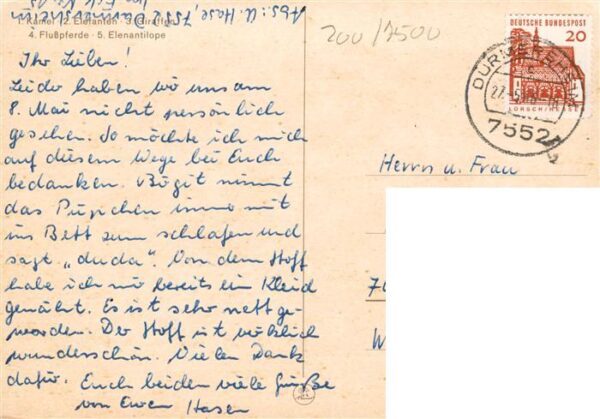 Abs.: U. Hase, 7552 Durmersheim
1. Kamel · 2. Elefanten · 3. Giraffen
4. Flußpferde · 5. Elenantilope
Ihr Lieben!
Leider haben wir uns am
8. Mai nicht persönlich
gesehen. So möchte ich mich
auf diesem Wege bei Euch
bedanken. Birgit nimmt
das Püpchen immer mit
ins Bett zum schlafen und
sagt „duda". Von dem Stoff
habe ich mir bereits ein Kleid
genäht. Es ist sehr nett ge-
worden. Der Stoff ist wirklich
wunderschön. Vielen Dank
dafür. Euch beiden viele Grüße
von Euren Hasen
200/7500
DEUTSCHE BUNDESPOST
20
LORSCH/HESSEN
DURMERSHEIM
7552
Herrn u. Frau
7
W